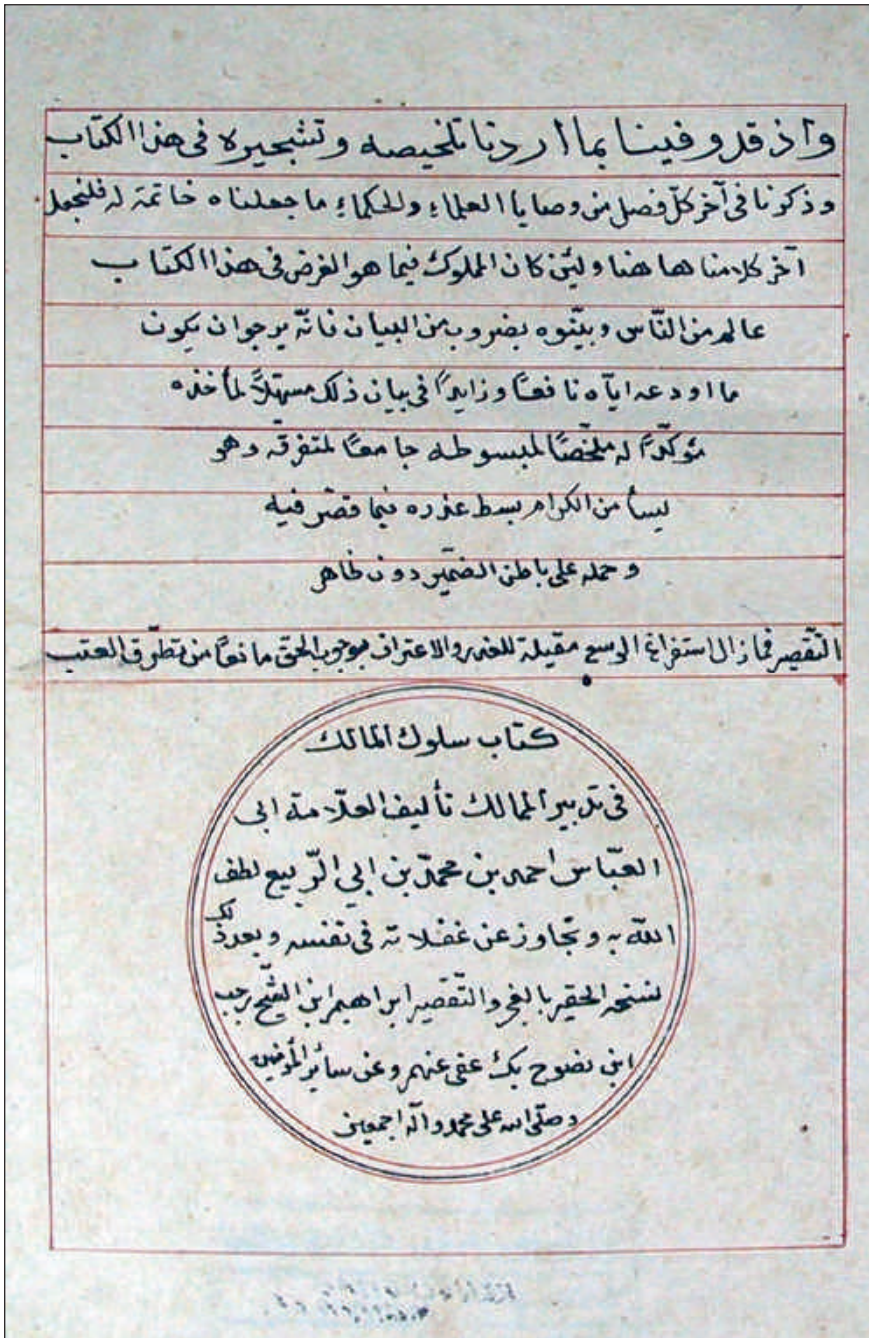 واذ قد وفينا بما اردنا تلخيصه وتشجيره فى هذا الكتاب
وذكرنا فى آخر كلّ فصل من وصايا العلماءِ والحكماءِ ما جعلناه خاتمة له فلنجعل
آخر كلامنا هاهنا ولئن كان الملوك فيما هو الغرض فى هذا الكتاب
عالم من النّاس وبيّنوه بضروب من البيان فانّه يرجوان يكون
ما اودعه ايّاه نافعًا وزايدًا فى بيان ذلك مسهّلاً لمأخذه
مؤكّدًا له ملخّصًا لمبسوطه جامعًا لمتفرقه وهو
يسأ من الكرام بسط عذره فيما قصّر فيه
وحمله على باطن الضمير دون ظاهر
التّقصير فما زال استفراغ الوسع مقيلة للعذر والاعتراف بوجوب الحق مانعًا من تطرّق العتب
كتاب سلوك المالك
فى تدبير الممالك تأليف العلّامة ابى
العبّاس احمد بن محمّد بن ابي الرّبيع لطف
اللّه به وتجاوز عن غفلاته فى نفسه وبعد ذلك
لنسخه الحقير والتّقصير ابراهيم ابن الشّيخ رجب
ابن نصوح بك عفى عنهم وعن سائر المؤمنين
وصلّى الله على محمد وآله اجمعين